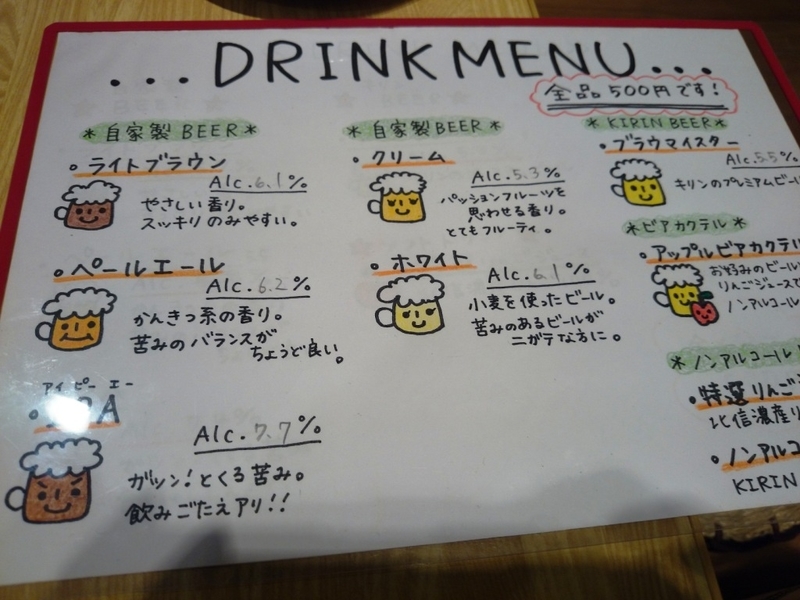 ...DRINK MENU...
全品500円です!
*自家製BEER*
・ライトブラウン
Alc.6.1%
やさしい香り。
スッキリのみやすい。
・ペールエール
Alc.6.2%
かんきつ系の香り。
苦みのバランスが
ちょうど良い。
アイ ピー エー
・IPA
Alc.7.7%
ガツン!とくる苦み。
飲みごたえアリ!!
*自家製BEER*
・クリーム
Alc.5.3%
パッションフルーツを
思わせる香り。
とてもフルーティ。
・ホワイト
Alc.6.1%
小麦を使ったビール。
苦みのあるビールが
ニガテな方に。
*KIRIN BEER*
・ブラウマイスター
Alc.5.5%
キリンのプレミアムビー
*ビアカクテル*
・アップルビアカクテル
お好みのビール
りんごジュースで
ノンアルコール
*ノンアルコール
・特選りんご
北信濃産り
・ノンアルコ
KIRIN